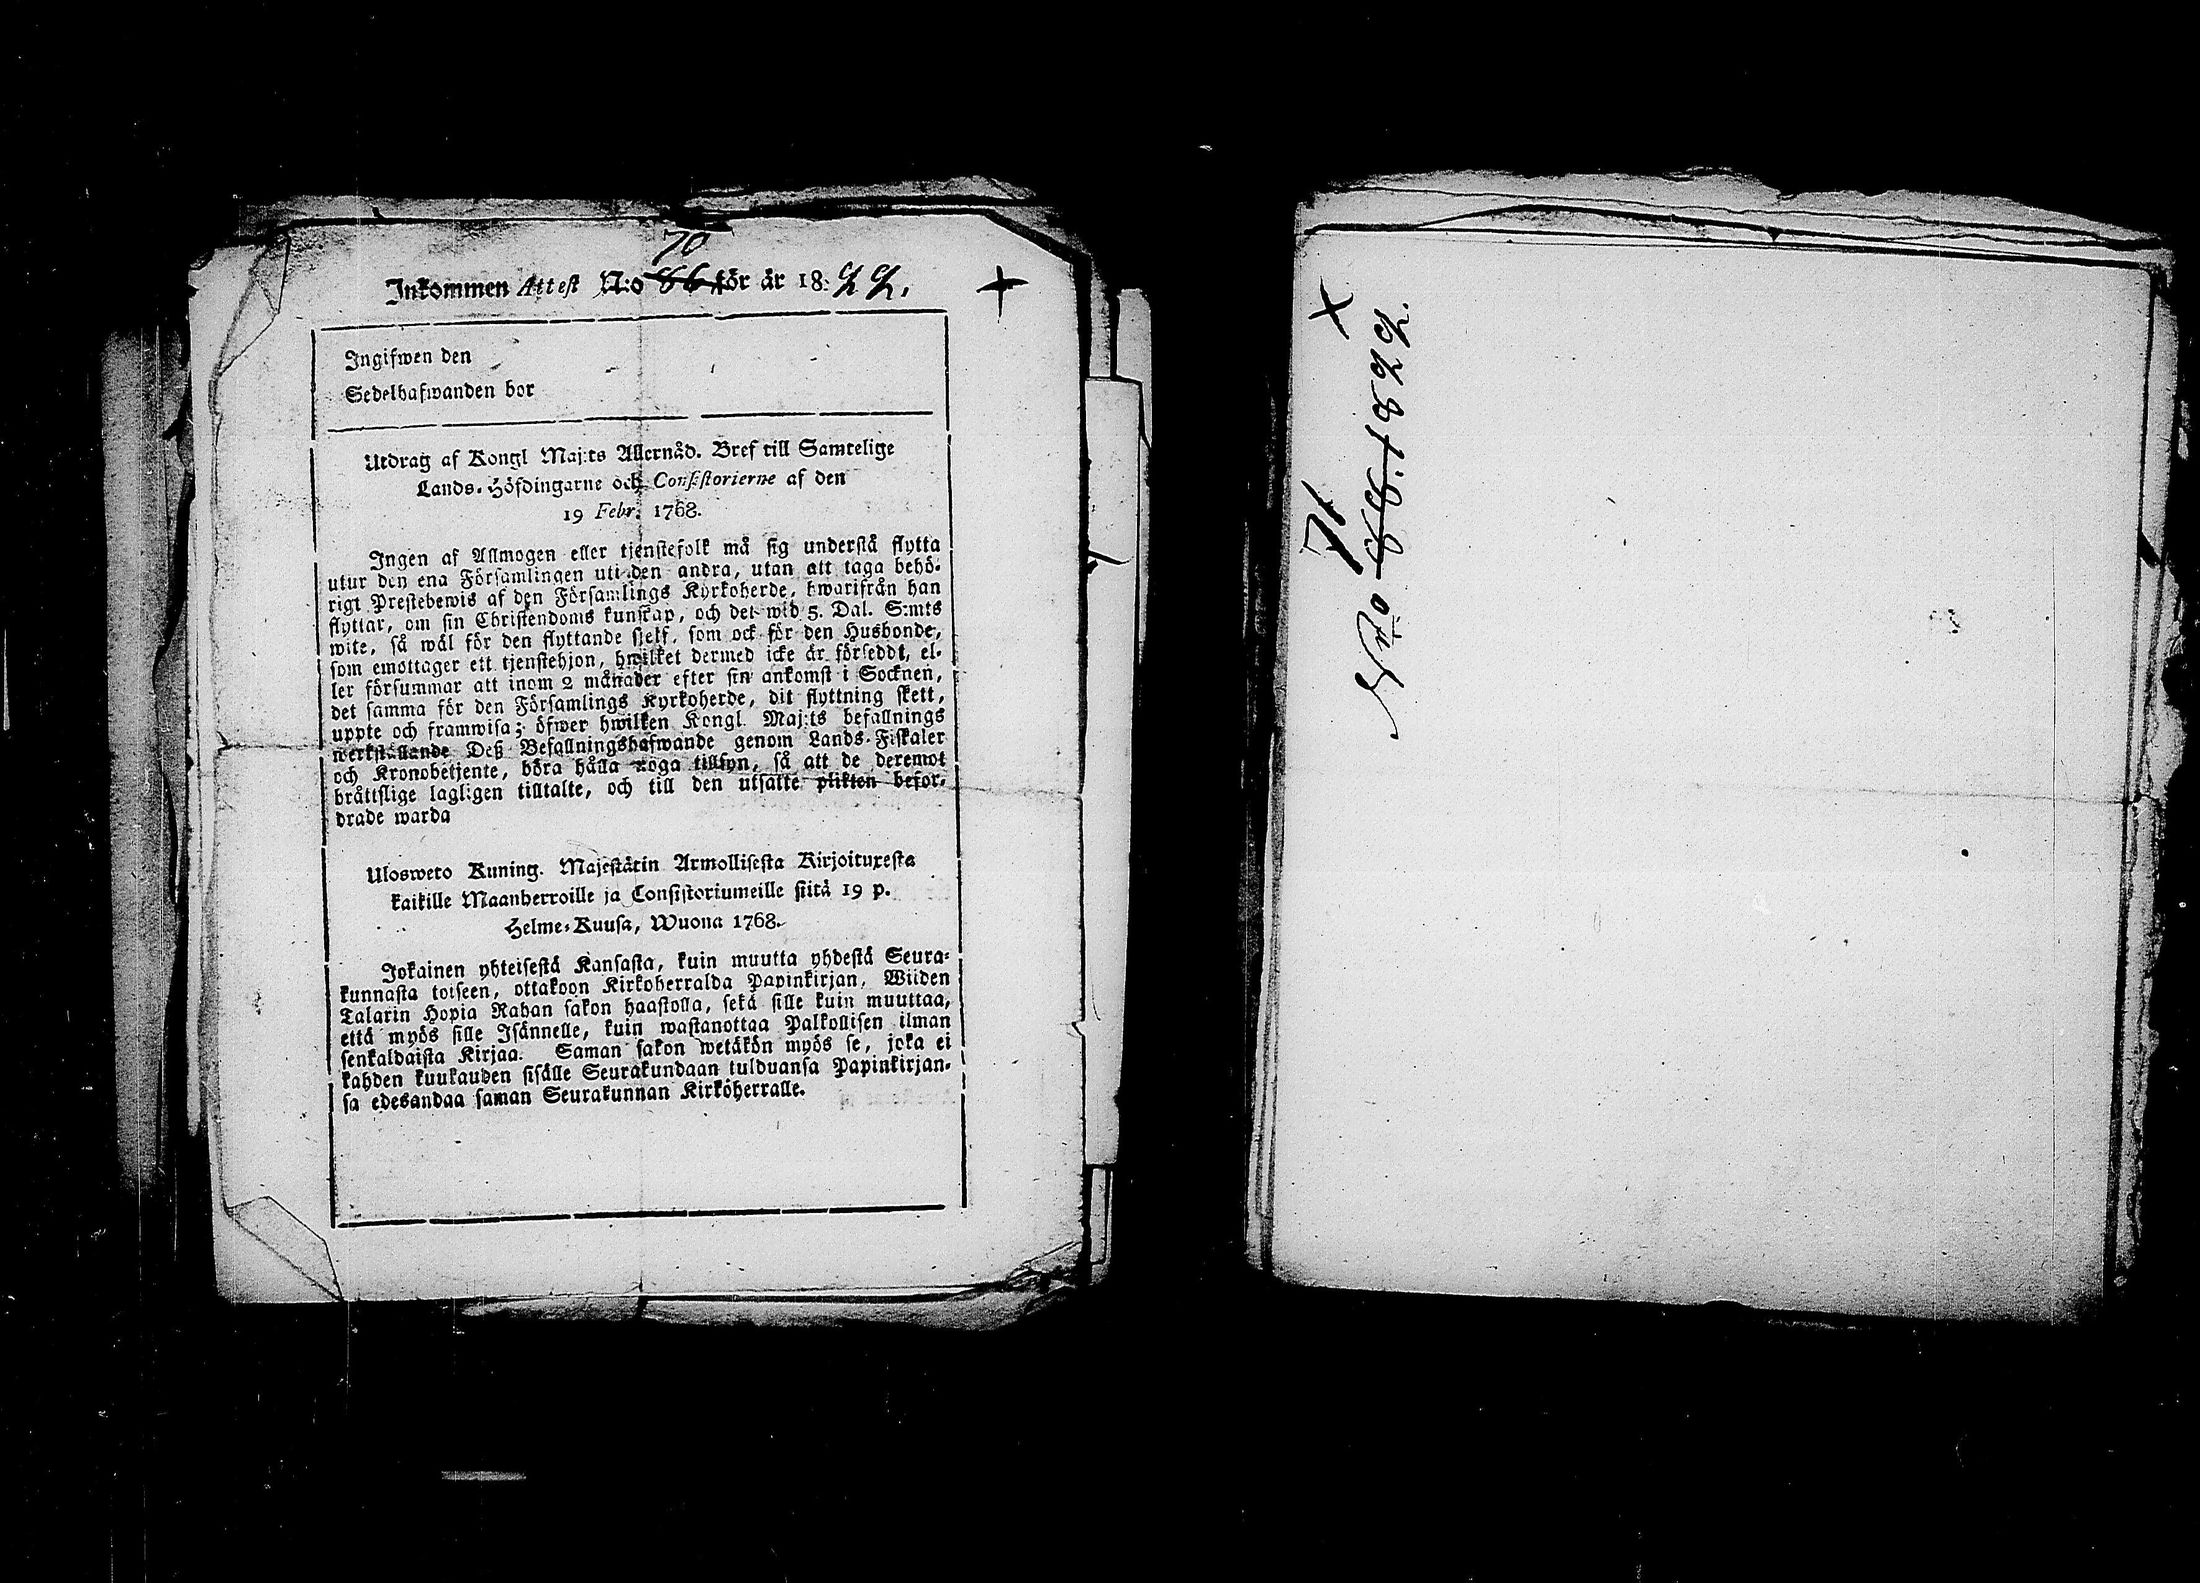 70
Inkommen Attest N:o 86 för år 1822. +
Ingifwen den
Sedelhafwanden bor
Utdrag af Kongl Maj:ts Allernåd. Bref till Samtelige
Lands-Höfdingarne och Consistorierne af den
19 Febr. 1768.
Ingen af Allmogen eller tjenstefolk må sig understå flytta
utur den ena Församlingen uti den andra, utan att taga behö-
rigt Prestebewis af den Församlings Kyrkoherde, hwarifrån han
flyttar, om sin Christendoms kunskap, och det wid 5. Dal. S:mts
wite, så wäl för den flyttande sjelf, som ock för den Husbonde,
som emottager ett tjenstehjon, hwilket dermed icke är förseddt, el-
ler försummar att inom 2 månader efter sin ankomst i Socknen,
det samma för den Församlings Kyrkoherde, dit flyttning skett,
uppte och framwisa; öfwer hwilken Kongl. Maj:ts befallnings
werkställande Deß Befallningshafwande genom Lands-Fiskaler
och Kronobetjente, böra hålla noga tillsyn, så att de deremot
bråttslige lagligen tilltalte, och till den utsatte plikten befor-
drade warda
Ulosweto Kuning. Majestätin Armollisesta Kirjoituxesta
kaikille Maanherroille ja Consistoriumeille siitä 19 p.
Helme-Kuusa, Wuona 1768.
Jokainen yhteisestä Kansasta, kuin muutta yhdestä Seura-
kunnasta toiseen, ottakoon Kirkoherralda Papinkirjan, Wiiden
Talarin Hopia Rahan sakon haastolla, sekä sille kuin muuttaa,
että myös sille Isännelle, kuin wastanottaa Palkollisen ilman
senkaldaista Kirjaa. Saman sakon wetäkön myös se, joka ei
kahden kuukauden sisälle Seurakundaan tulduansa Papinkirjan-
sa edesandaa saman Seurakunnan Kirköherralle.
x
71
N:o 1822.